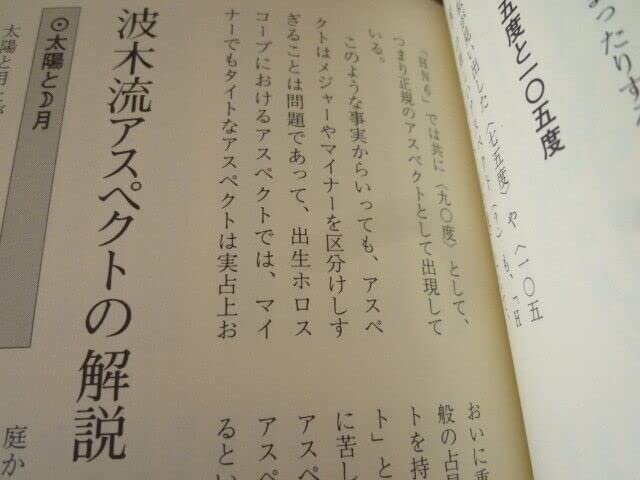 ったりする
五度と一〇五度
出した〈七五度〉や〈一〇五
「HN6」では共に〈九〇度〉として、
つまり正規のアスペクトとして出現して
いる。
このような事実からいっても、アスペ
クトはメジャーやマイナーを区分けしす
ぎることは問題であって、出生ホロス
コープにおけるアスペクトでは、マイ
ナーでもタイトなアスペクトは実占上お
おいに重
般の占星
トを持
ト」と
に苦し
アスペ
アスペ
るとい
波木流アスペクトの解説
☉太陽と☽月
太陽と月
庭か